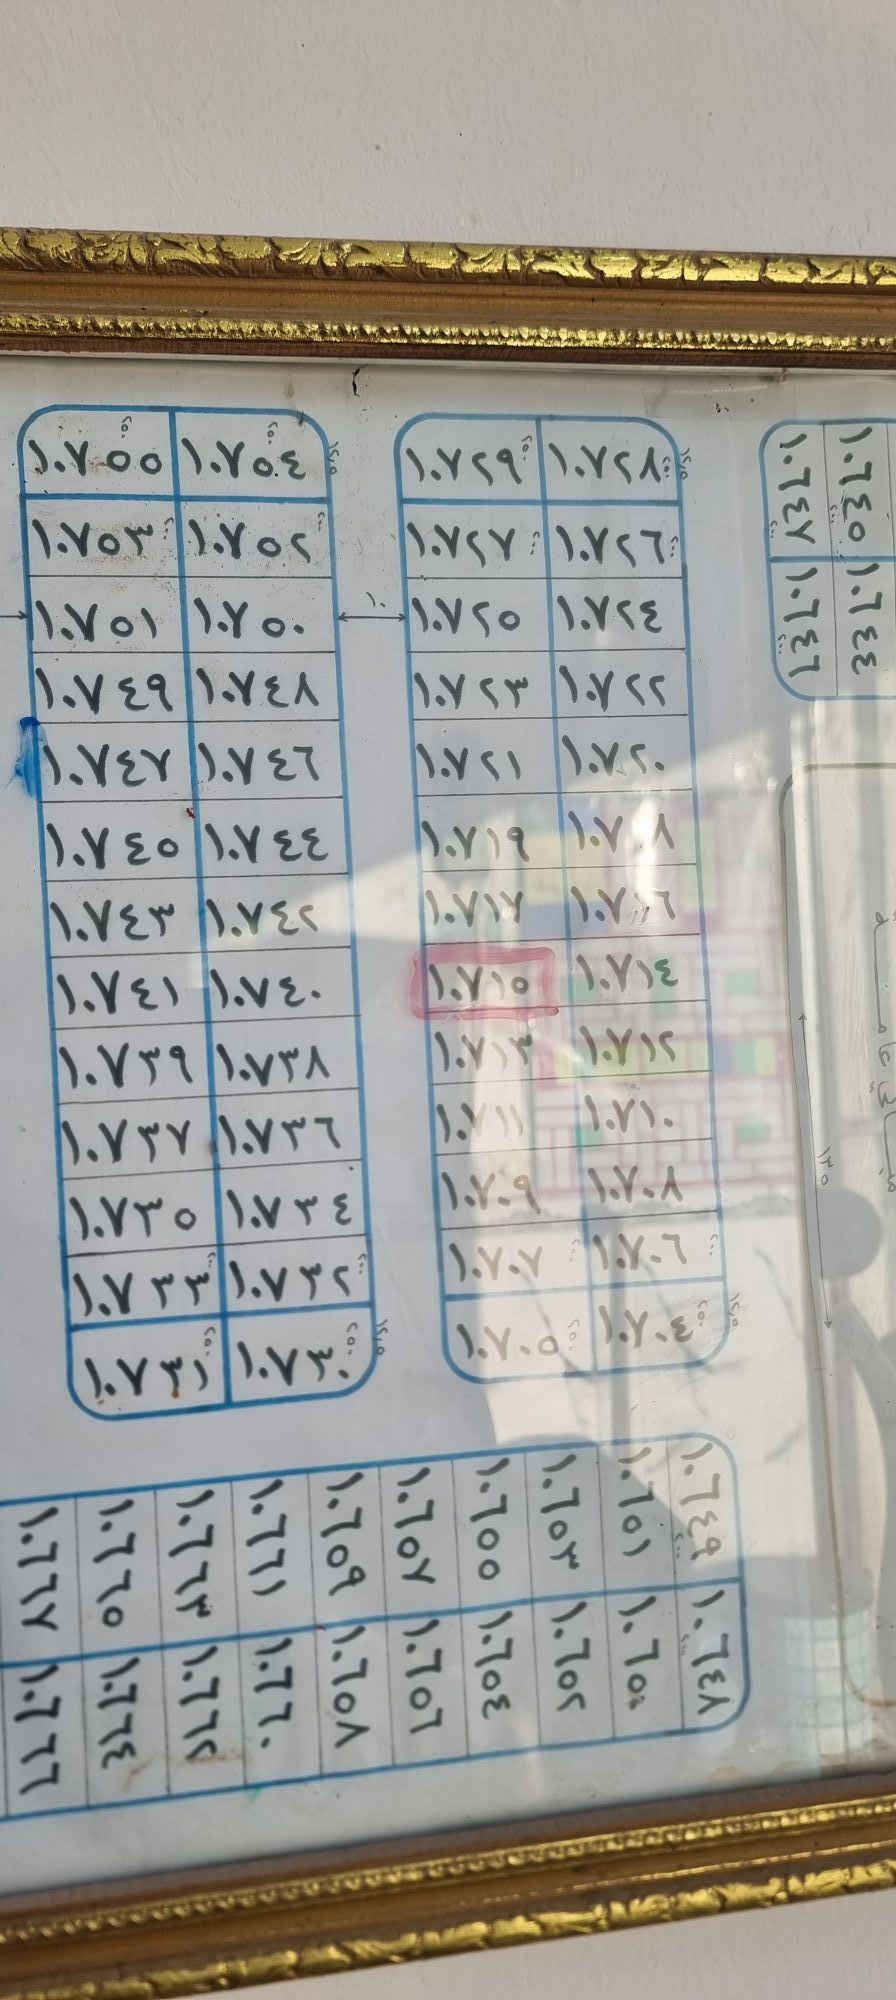 ١٠٧٥٥ ١٠٧٥٤ ١٠٧٢٩ ١٠٧٢٨
١٠٧٥٣ ١٠٧٥٢ ١٠٧٢٧ ١٠٧٢٦
١٠٧٥١ ١٠٧٥٠ ١٠ ١٠٧٢٥ ١٠٧٢٤
١٠٧٤٩ ١٠٧٤٨ ١٠٧٢٣ ١٠٧٢٢
١٠٧٤٧ ١٠٧٤٦ ١٠٧٢١ ١٠٧٢٠
١٠٧٤٥ ١٠٧٤٤ ١٠٧١٩ ١٠٧١٨
١٠٧٤٣ ١٠٧٤٢ ١٠٧١٧ ١٠٧١٦
١٠٧٤١ ١٠٧٤٠ ١٠٧١٥ ١٠٧١٤
١٠٧٣٩ ١٠٧٣٨ ١٠٧١٣ ١٠٧١٢
١٠٧٣٧ ١٠٧٣٦ ١٠٧١١ ١٠٧١٠
١٠٧٣٥ ١٠٧٣٤ ١٠٧٠٩ ١٠٧٠٨
١٠٧٣٣ ١٠٧٣٢ ١٠٧٠٧ ١٠٧٠٦
١٠٧٣١ ١٠٧٣٠ ١٠٧٠٥ ١٠٧٠٤
١٠٦٤٥ ١٠٦٤٤
١٠٦٤٧ ١٠٦٤٦
١٠٦٤٩ ١٠٦٤٨
١٠٦٥١ ١٠٦٥٠
١٠٦٥٣ ١٠٦٥٢
١٠٦٥٥ ١٠٦٥٤
١٠٦٥٧ ١٠٦٥٦
١٠٦٥٩ ١٠٦٥٨
١٠٦٦١ ١٠٦٦٠
١٠٦٦٣ ١٠٦٦٢
١٠٦٦٥ ١٠٦٦٤
١٠٦٦٧ ١٠٦٦٦
١٣٥